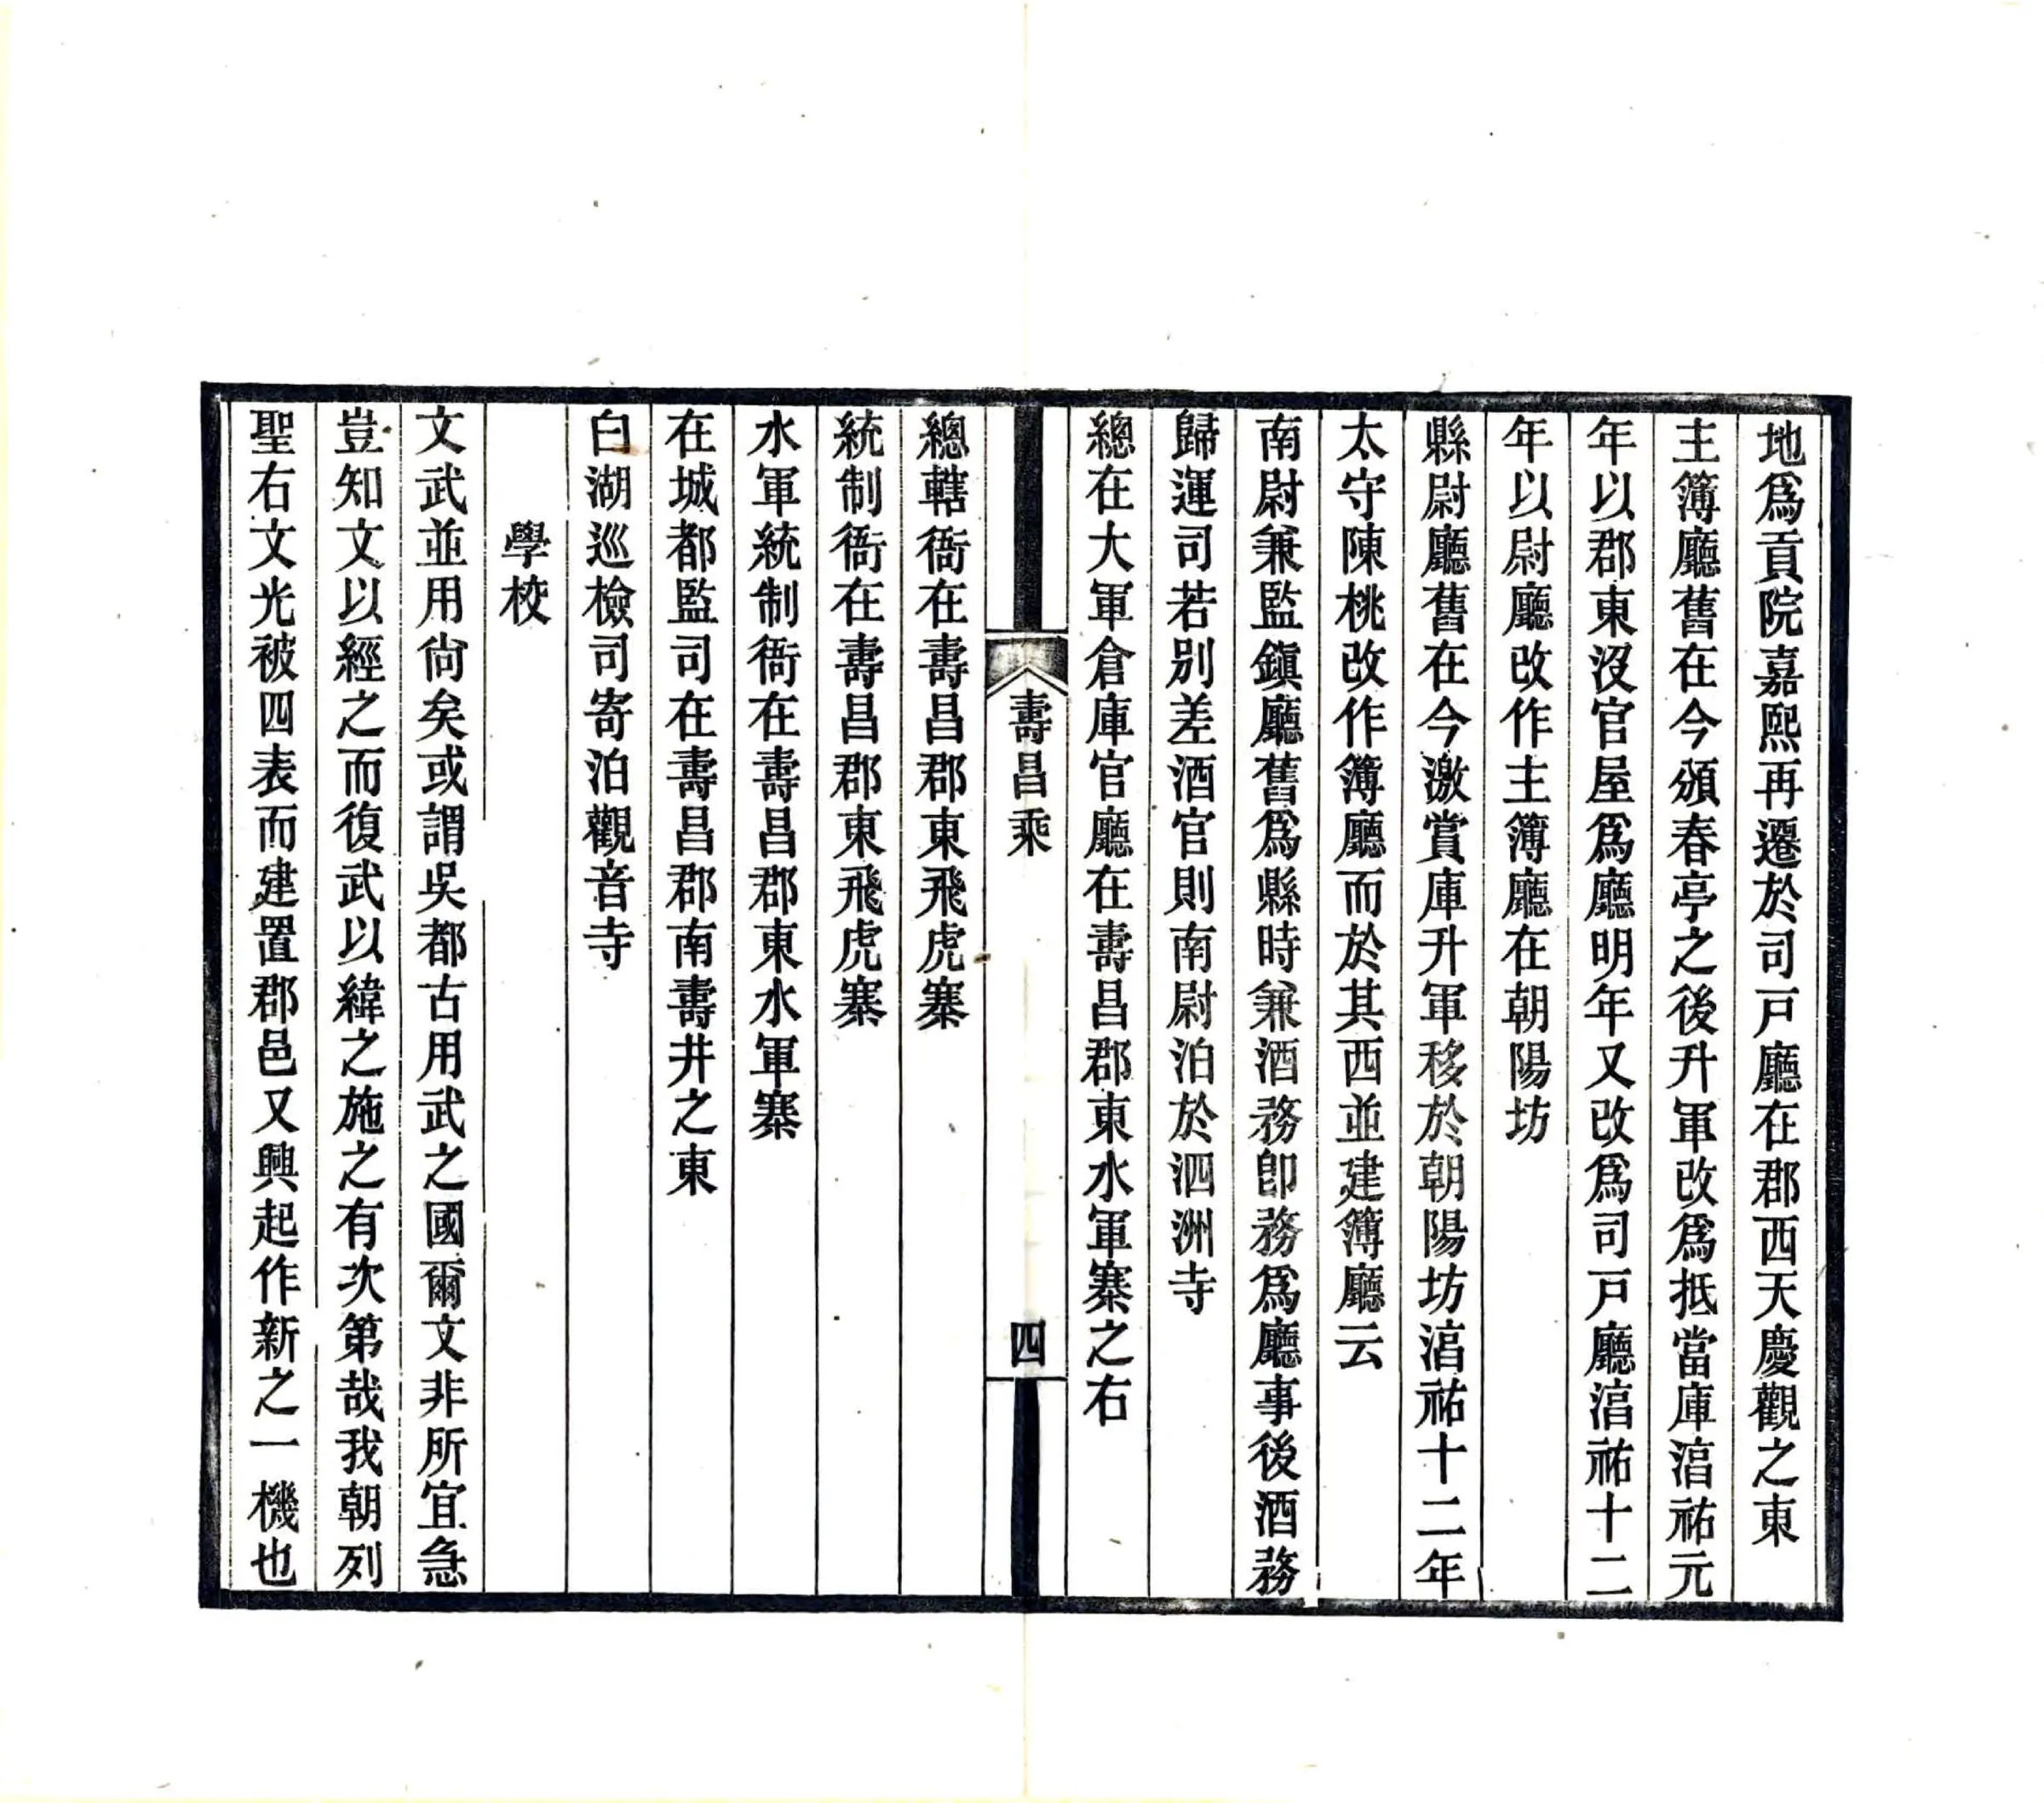 地爲貢院嘉熙再遷於司戸廳在郡西天慶觀之東
主簿廳舊在今頒春亭之後升軍改爲抵當庫湻祐元
年以郡東沒官屋爲廳明年又改爲司戸廳湻祐十二
年以尉廳改作主簿廳在朝陽坊
縣尉廳舊在今激賞庫升軍移於朝陽坊湻祐十二年
太守陳桃改作簿廳而於其西並建簿廳云
南尉兼監鎭廳舊爲縣時兼酒務卽務爲廳事後酒務
歸運司若別差酒官則南尉泊於泗洲寺
總在大軍倉庫官廳在壽昌郡東水軍寨之右
壽昌乘
四
總轄衙在壽昌郡東飛虎寨
統制衙在壽昌郡東飛虎寨
水軍統制衙在壽昌郡東水軍寨
在城都監司在壽昌郡南壽井之東
白湖巡檢司寄泊觀音寺
學校
文武並用尙矣或謂吳都古用武之國爾文非所宜急
豈知文以經之而復武以緯之施之有次第哉我朝列
聖右文光被四表而建置郡邑又興起作新之一機也